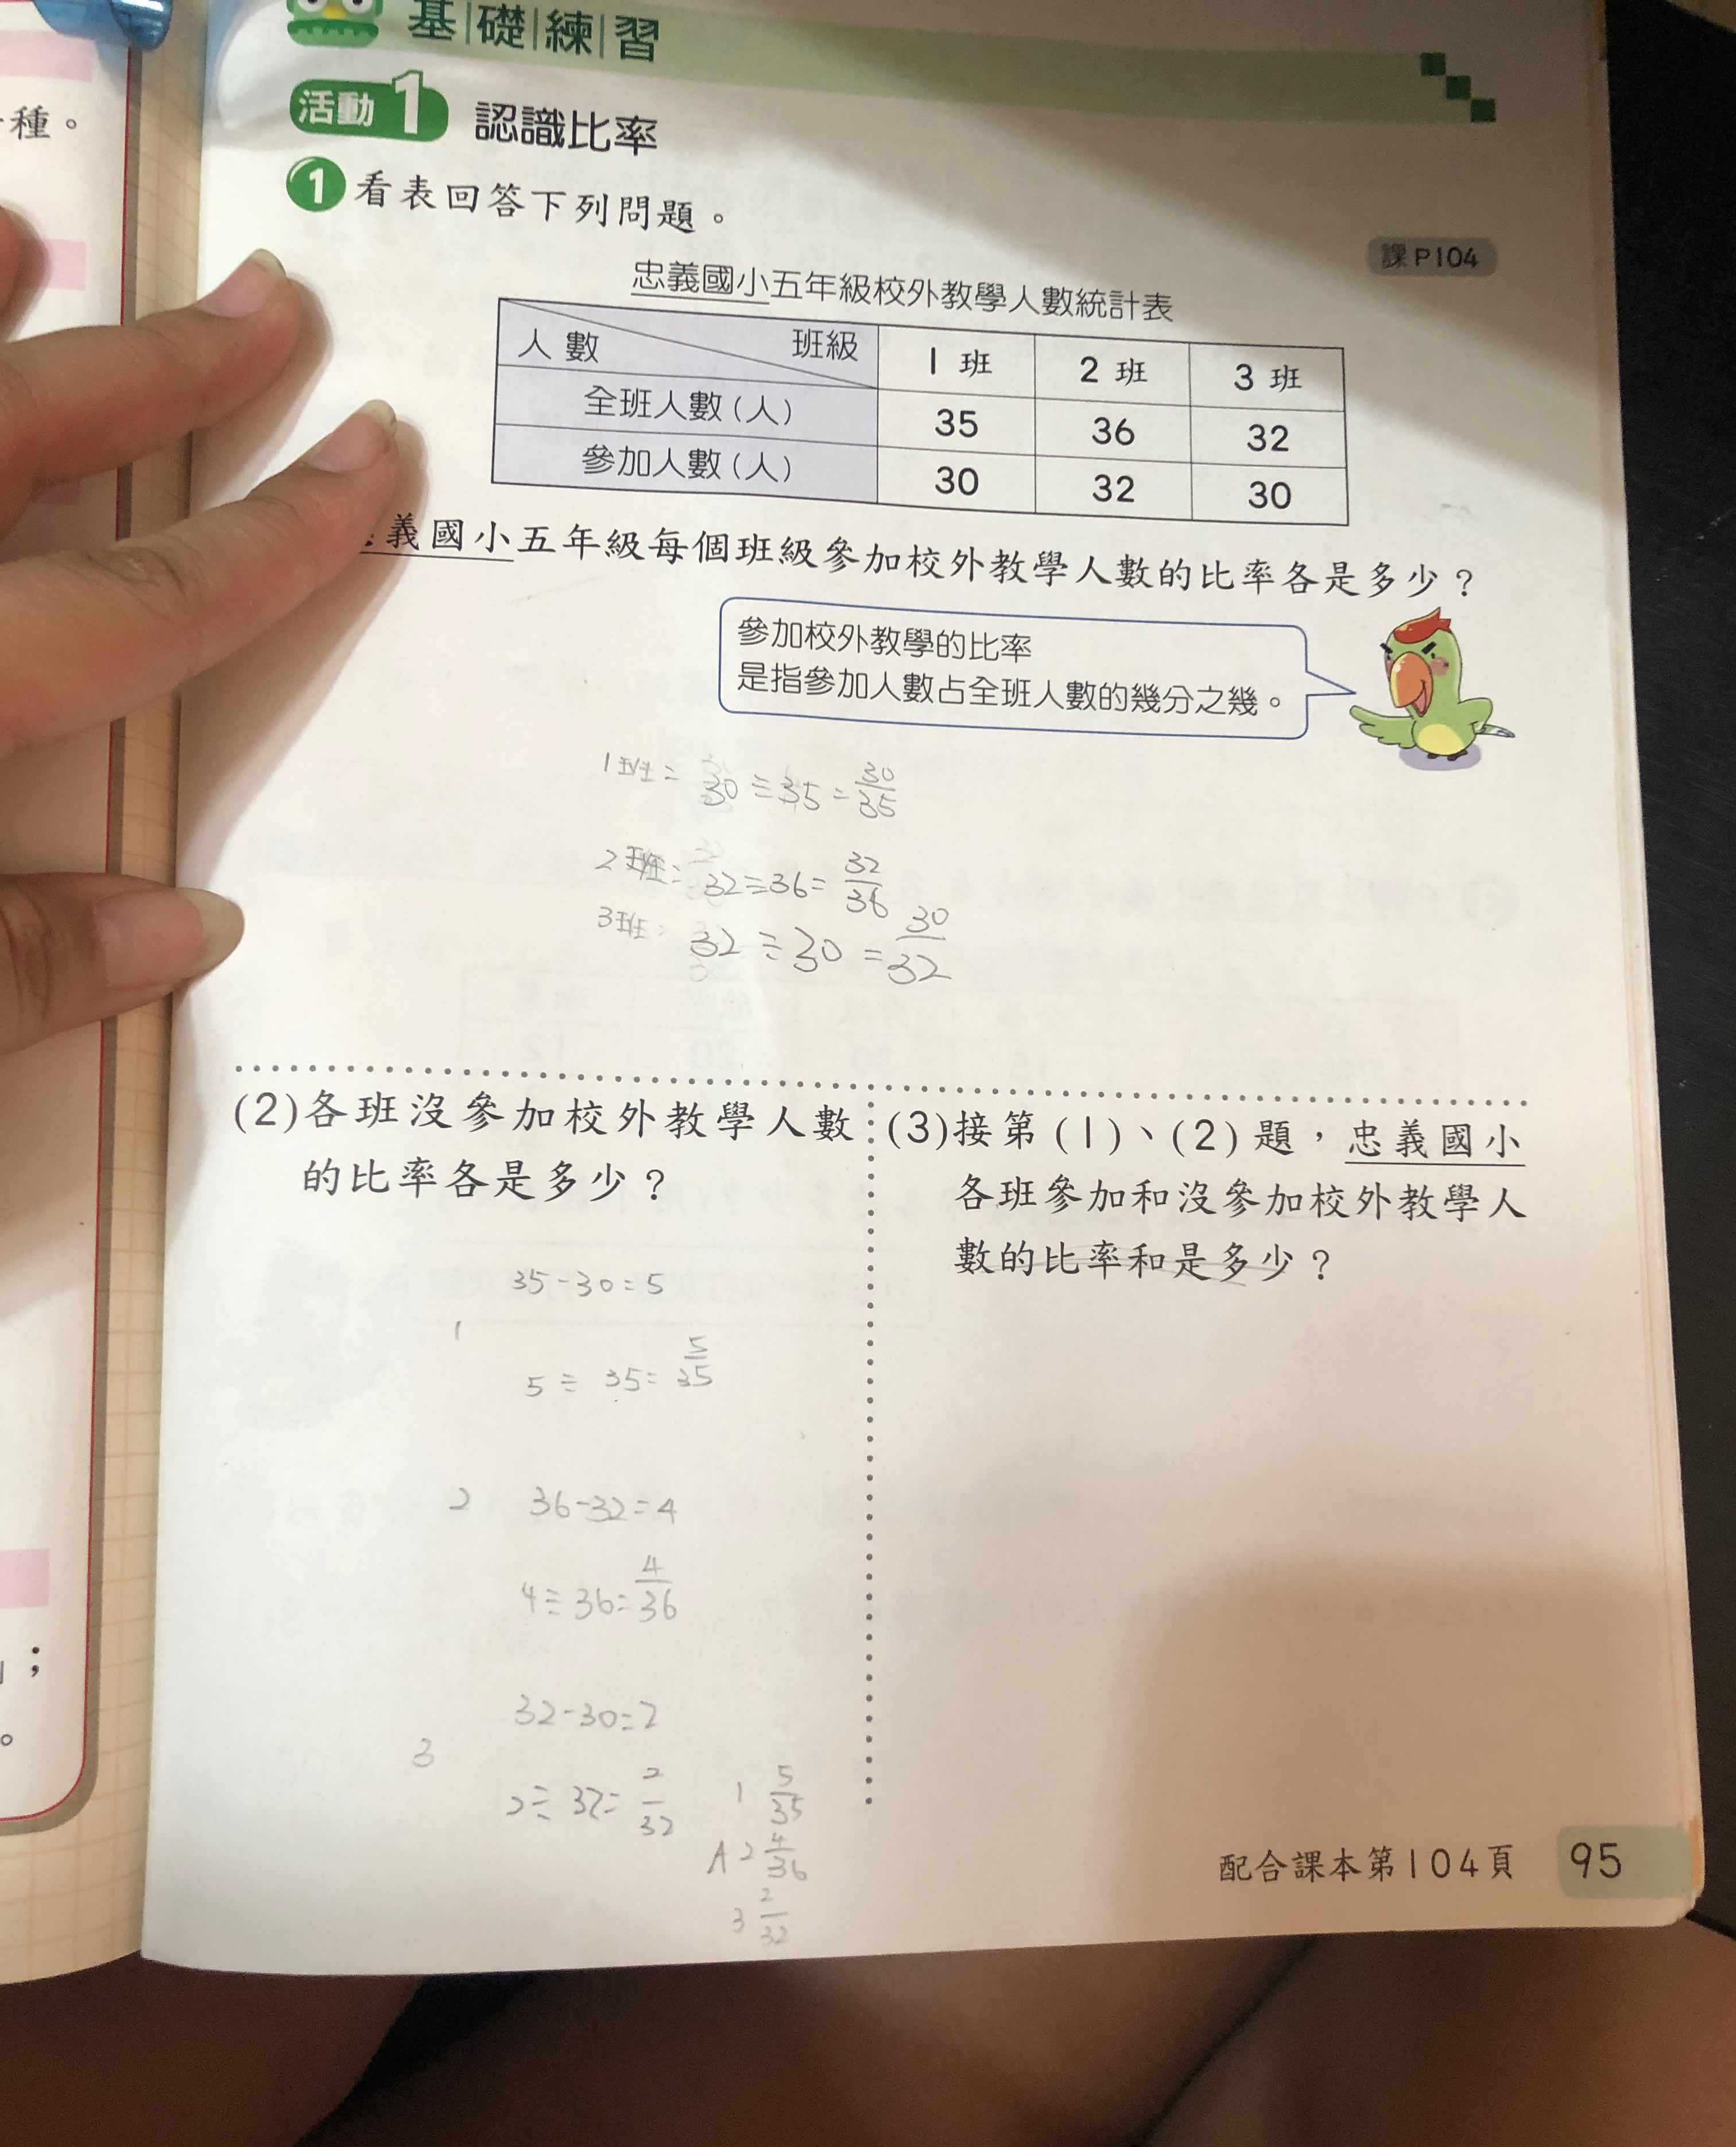 種。
；
。
基礎練習
活動1 認識比率
1 看表回答下列問題。
課P104
忠義國小五年級校外教學人數統計表
人數 班級 1班 2班 3班
全班人數(人) 35 36 32
參加人數(人) 30 32 30
義國小五年級每個班級參加校外教學人數的比率各是多少？
參加校外教學的比率
是指參加人數占全班人數的幾分之幾。
1班= 30÷35=30/35
2班: 32÷36=32/36
3班: 32÷30=30/32
(2)各班沒參加校外教學人數
的比率各是多少？
35-30=5
1
5÷35=5/35
2 36-32=4
4÷36=4/36
32-30=2
3
2÷32=2/32
1 5/35
A 2 4/36
3 2/32
(3)接第(1)、(2)題，忠義國小
各班參加和沒參加校外教學人
數的比率和是多少？
配合課本第104頁 95